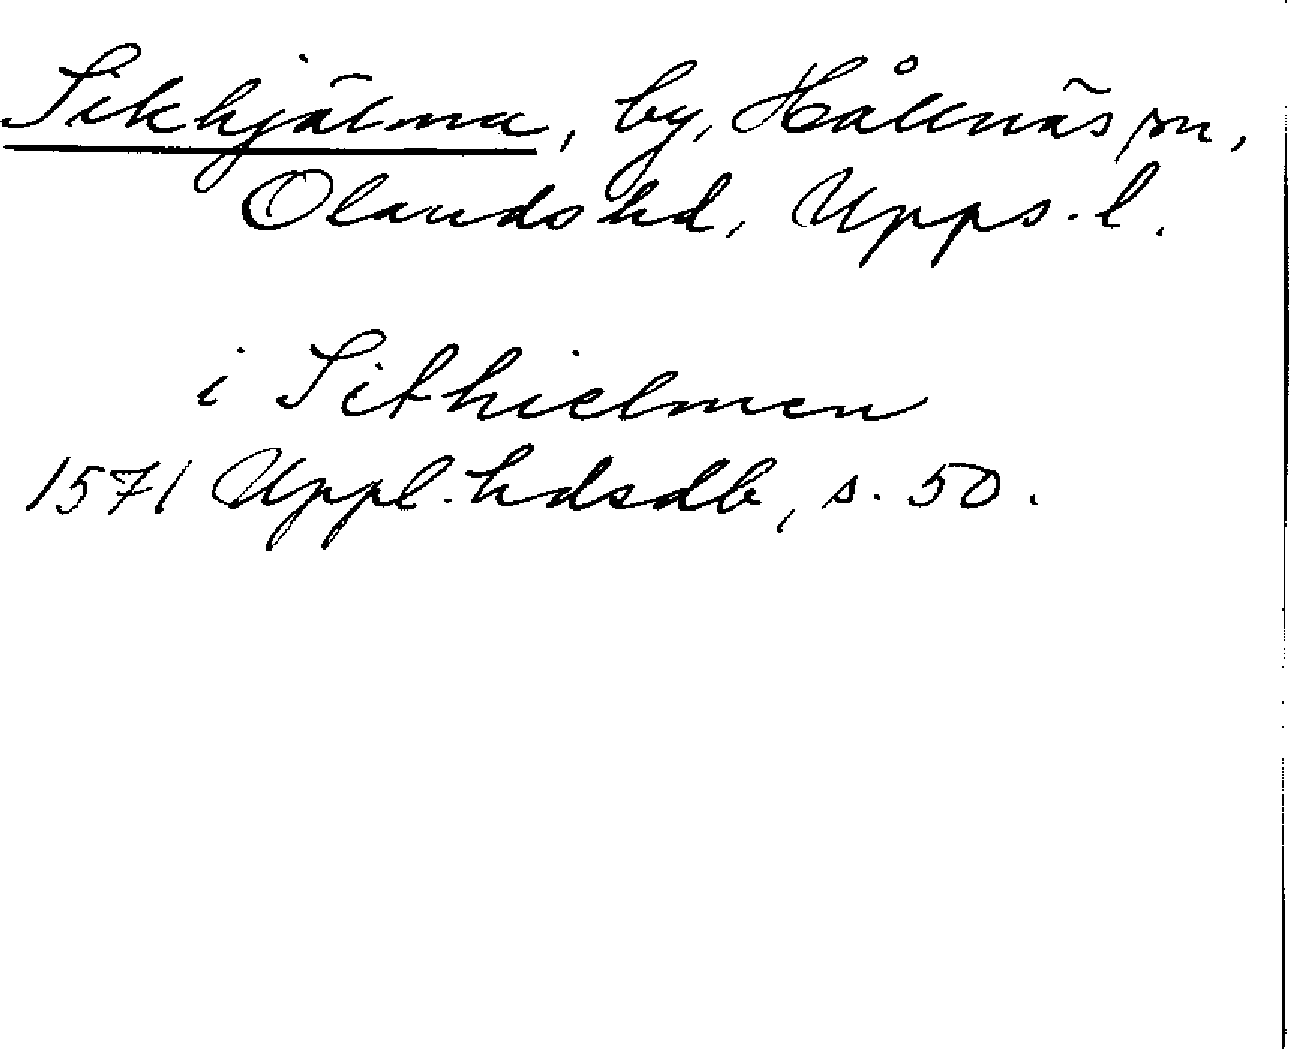 Sikhjälma, by, Hållnäs sn,
Olands hd, Upps. l.
i Sikhielmen
1571 Uppl. hdsdb, s. 50.